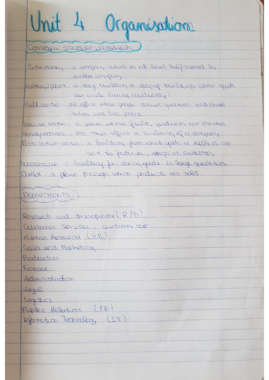 Unit 4 Organisation
COMPANY DEVELOPMENT
Subsidiary: a company which is at least half-owned by
another company
a large building or group of buildings where goods
are made (using machinery)
Call centre: an office where people answer questions and make
sales over the phone
Service centre: a place where faulty products are mended
Headquarters: the main office or building of a company
Distribution centre: a building from which goods or supplies are
sent to factories, shops or customers
Warehouse: a building for storing goods in large quantities
Outlet: a place through which products are sold
DEPARTMENTS
Research and development (R&D)
Customer Services
Human Resources (HR)
Sales and Marketing
Production
Finance
Administration
Legal
Logistics
Public Relations (PR)
Information Technology (IT)